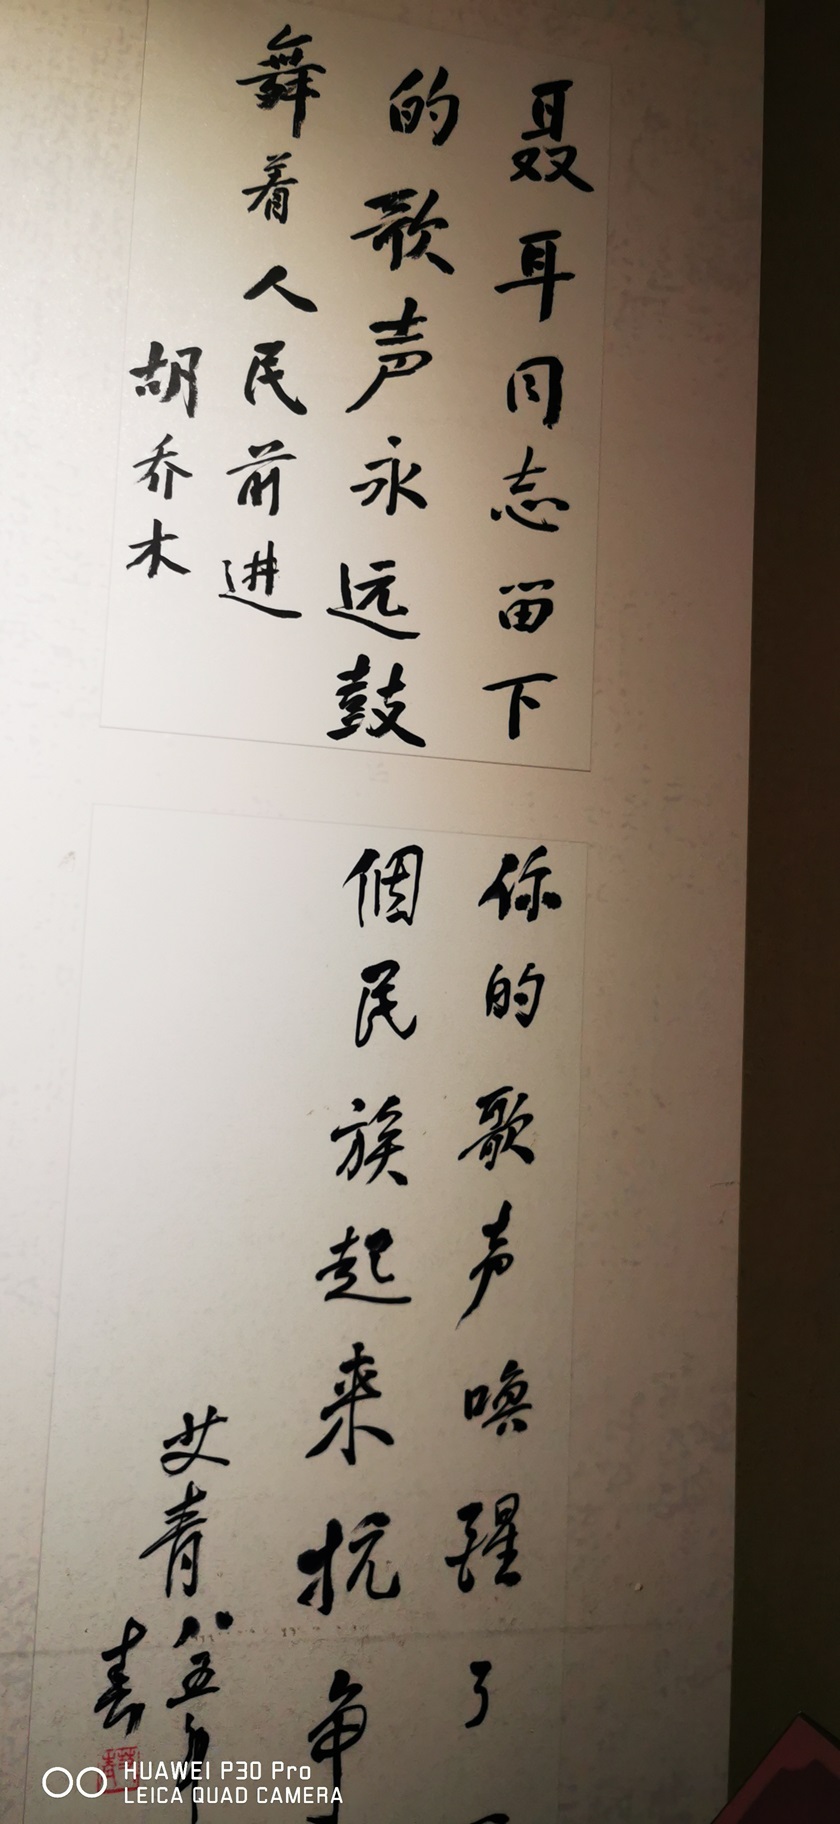 聂耳同志留下
的歌声永远鼓
舞着人民前进
胡乔木
你的歌声唤醒了
個民族起来抗争
艾青
八五年
春
HUAWEI P30 Pro
LEICA QUAD CAMERA